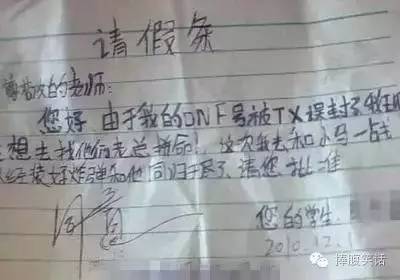 请假条
尊敬的老师:
您好 由于我的DNF号被TX误封了我现
想去找他们老总拼命!这次我去和小马一战
经装好炸弹和他同归于尽了 请您批准
同意
您的学生:
2010.12.
捧腹笑话